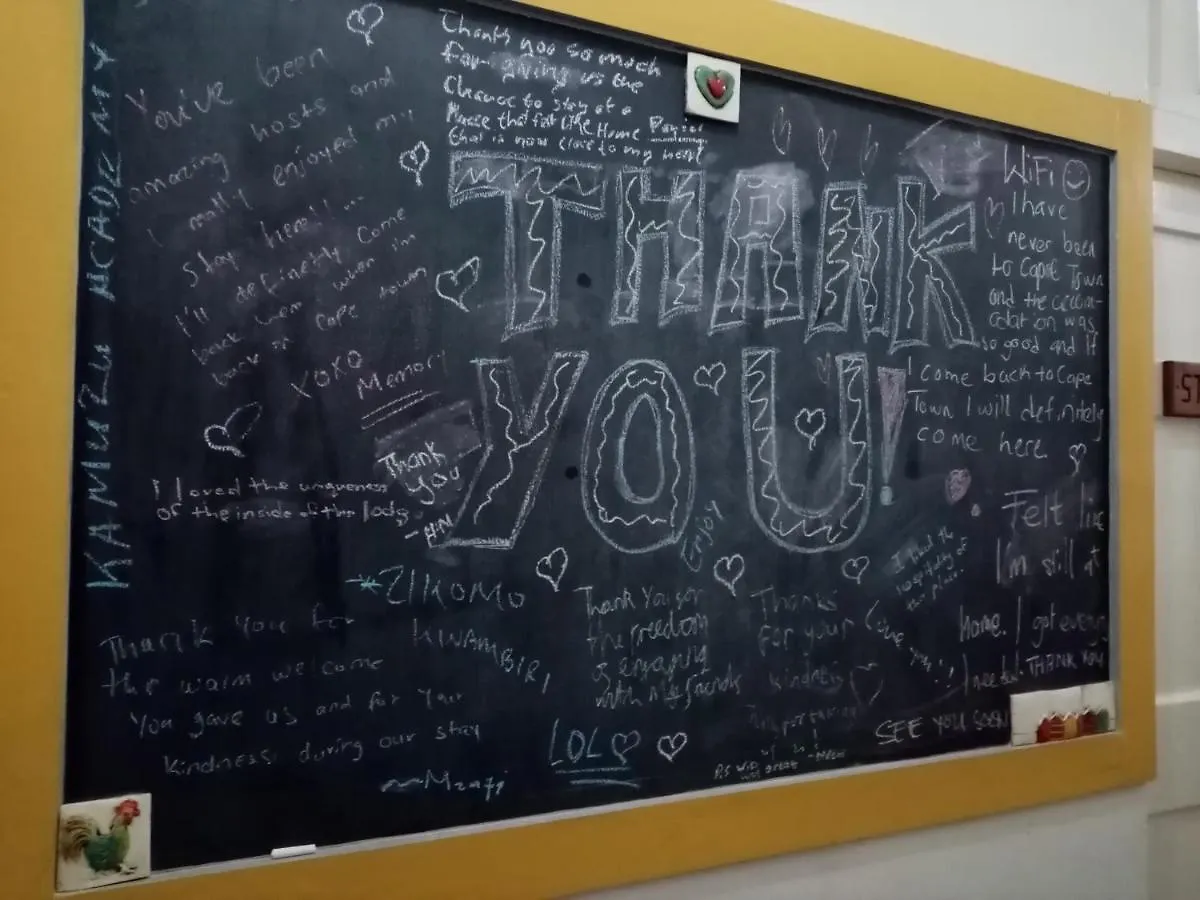 KAMUZU ACADEMY
You've been
amazing hosts and
I really enjoyed my
stay here!! ...
I'll definetly come
back when when im
back at Cape town
XOXO
Memory
Thank you so much
for giving us the
Chance to stay at a
Place that felt like Home
that is now close to my heart
THANK
YOU!
WiFi
I have
never been
to Cape Town
and the accom-
odation was
so good and if
I come back to Cape
Town I will definitely
come here.
Thank
you
I loved the uniqueness
of the inside of the lodge
Enjoy
I liked the
hospitality of
the place.
Felt like
I'm still at
home. I got every
I need! THANK YOU
*ZIKOMO
KWAMBIRI
Thank you for
the warm welcome
You gave us and for your
kindness during our stay
~Mzati
Thank You for
the freedom
of enjoying
with my friends
LOL
Thanks
for your
kindness
Love you!!
SEE YOU SOON
P.S WiFi
was great